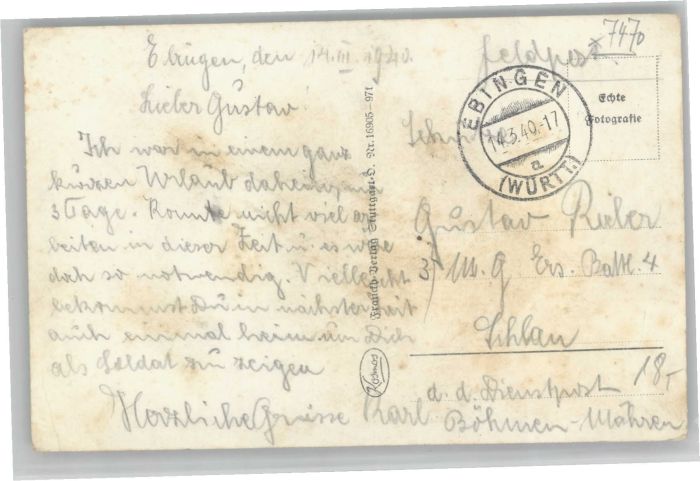 Ebingen, den 14.III.1940.
Lieber Gustav!
Ich war in einem ganz
kurzen Urlaub daheim, nur
3 Tage. Konnte nicht viel ar
beiten in dieser Zeit u. es wäre
doch so notwendig. Vielleicht
bekommst Du in nächster Zeit
auch einmal heim um Dich
als Soldat zu zeigen
Herzliche Grüsse Karl
Franckh-Verlag Stuttgart-O. Nr. 16905-971
Kosmos
7470
Feldpost.
EBINGEN
14.3.40.-17
a
(WÜRTT.)
Echte
Fotografie
Gustav Rieber
3/ M. G Ers. Batl. 4
Schlan
d. d. Dienstpost
Böhmen-Mähren
18,-